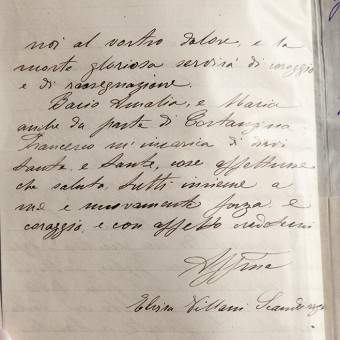 noi al vostro dolore, e la
morte gloriosa servirà di coraggio
e di rassegnazione.
Bacio Amalia, e Maria
anche da parte di Costanzina
Francesco m'incarica di dirvi
tante, e tante, cose affettuose
che saluta, tutti insieme a
me e nuovamente forza e
coraggio, e con affetto credetemi
Aff.ma
Elvira Villani